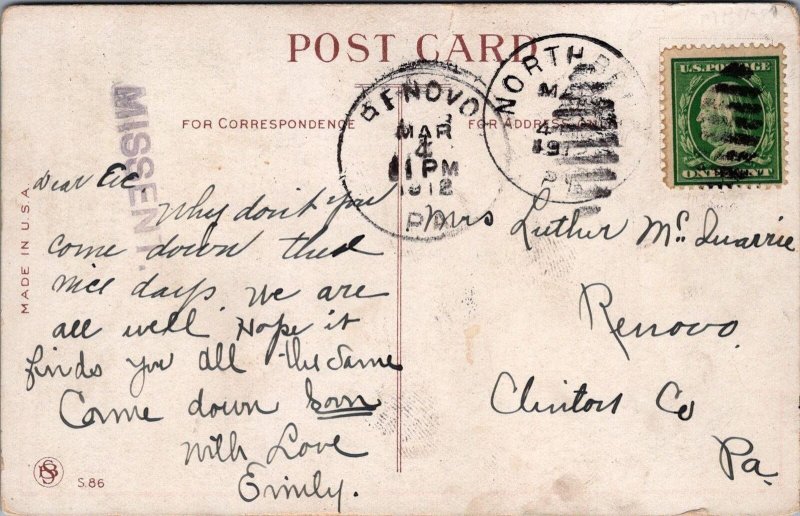 POST CARD
FOR CORRESPONDENCE
FOR ADDRESS ONLY
MISSENT.
MADE IN U.S.A.
RENOVO
MAR
4
11 PM
1912
PA.
NORTH
4
U.S. POSTAGE
ONE CENT
Dear
Why don't you
come down these
nice days. We are
all well. Hope it
finds you all the same
Come down soon
with Love
Emily.
Mrs Luther Mc Quarrie
Renovo
Clinton Co
Pa.
S.86